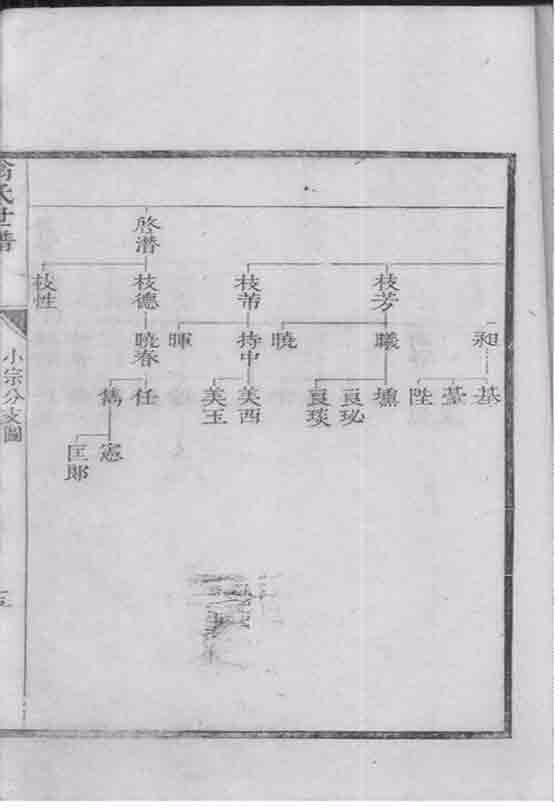 啓潜
枝芳
枝芾
枝德
枝性
昶
曦
曉
持中
暉
曉春
基
臺
陛
壎
良珌
良琰
美西
美玉
任
雋
憲
匡郎
氏世譜
小宗分支圖